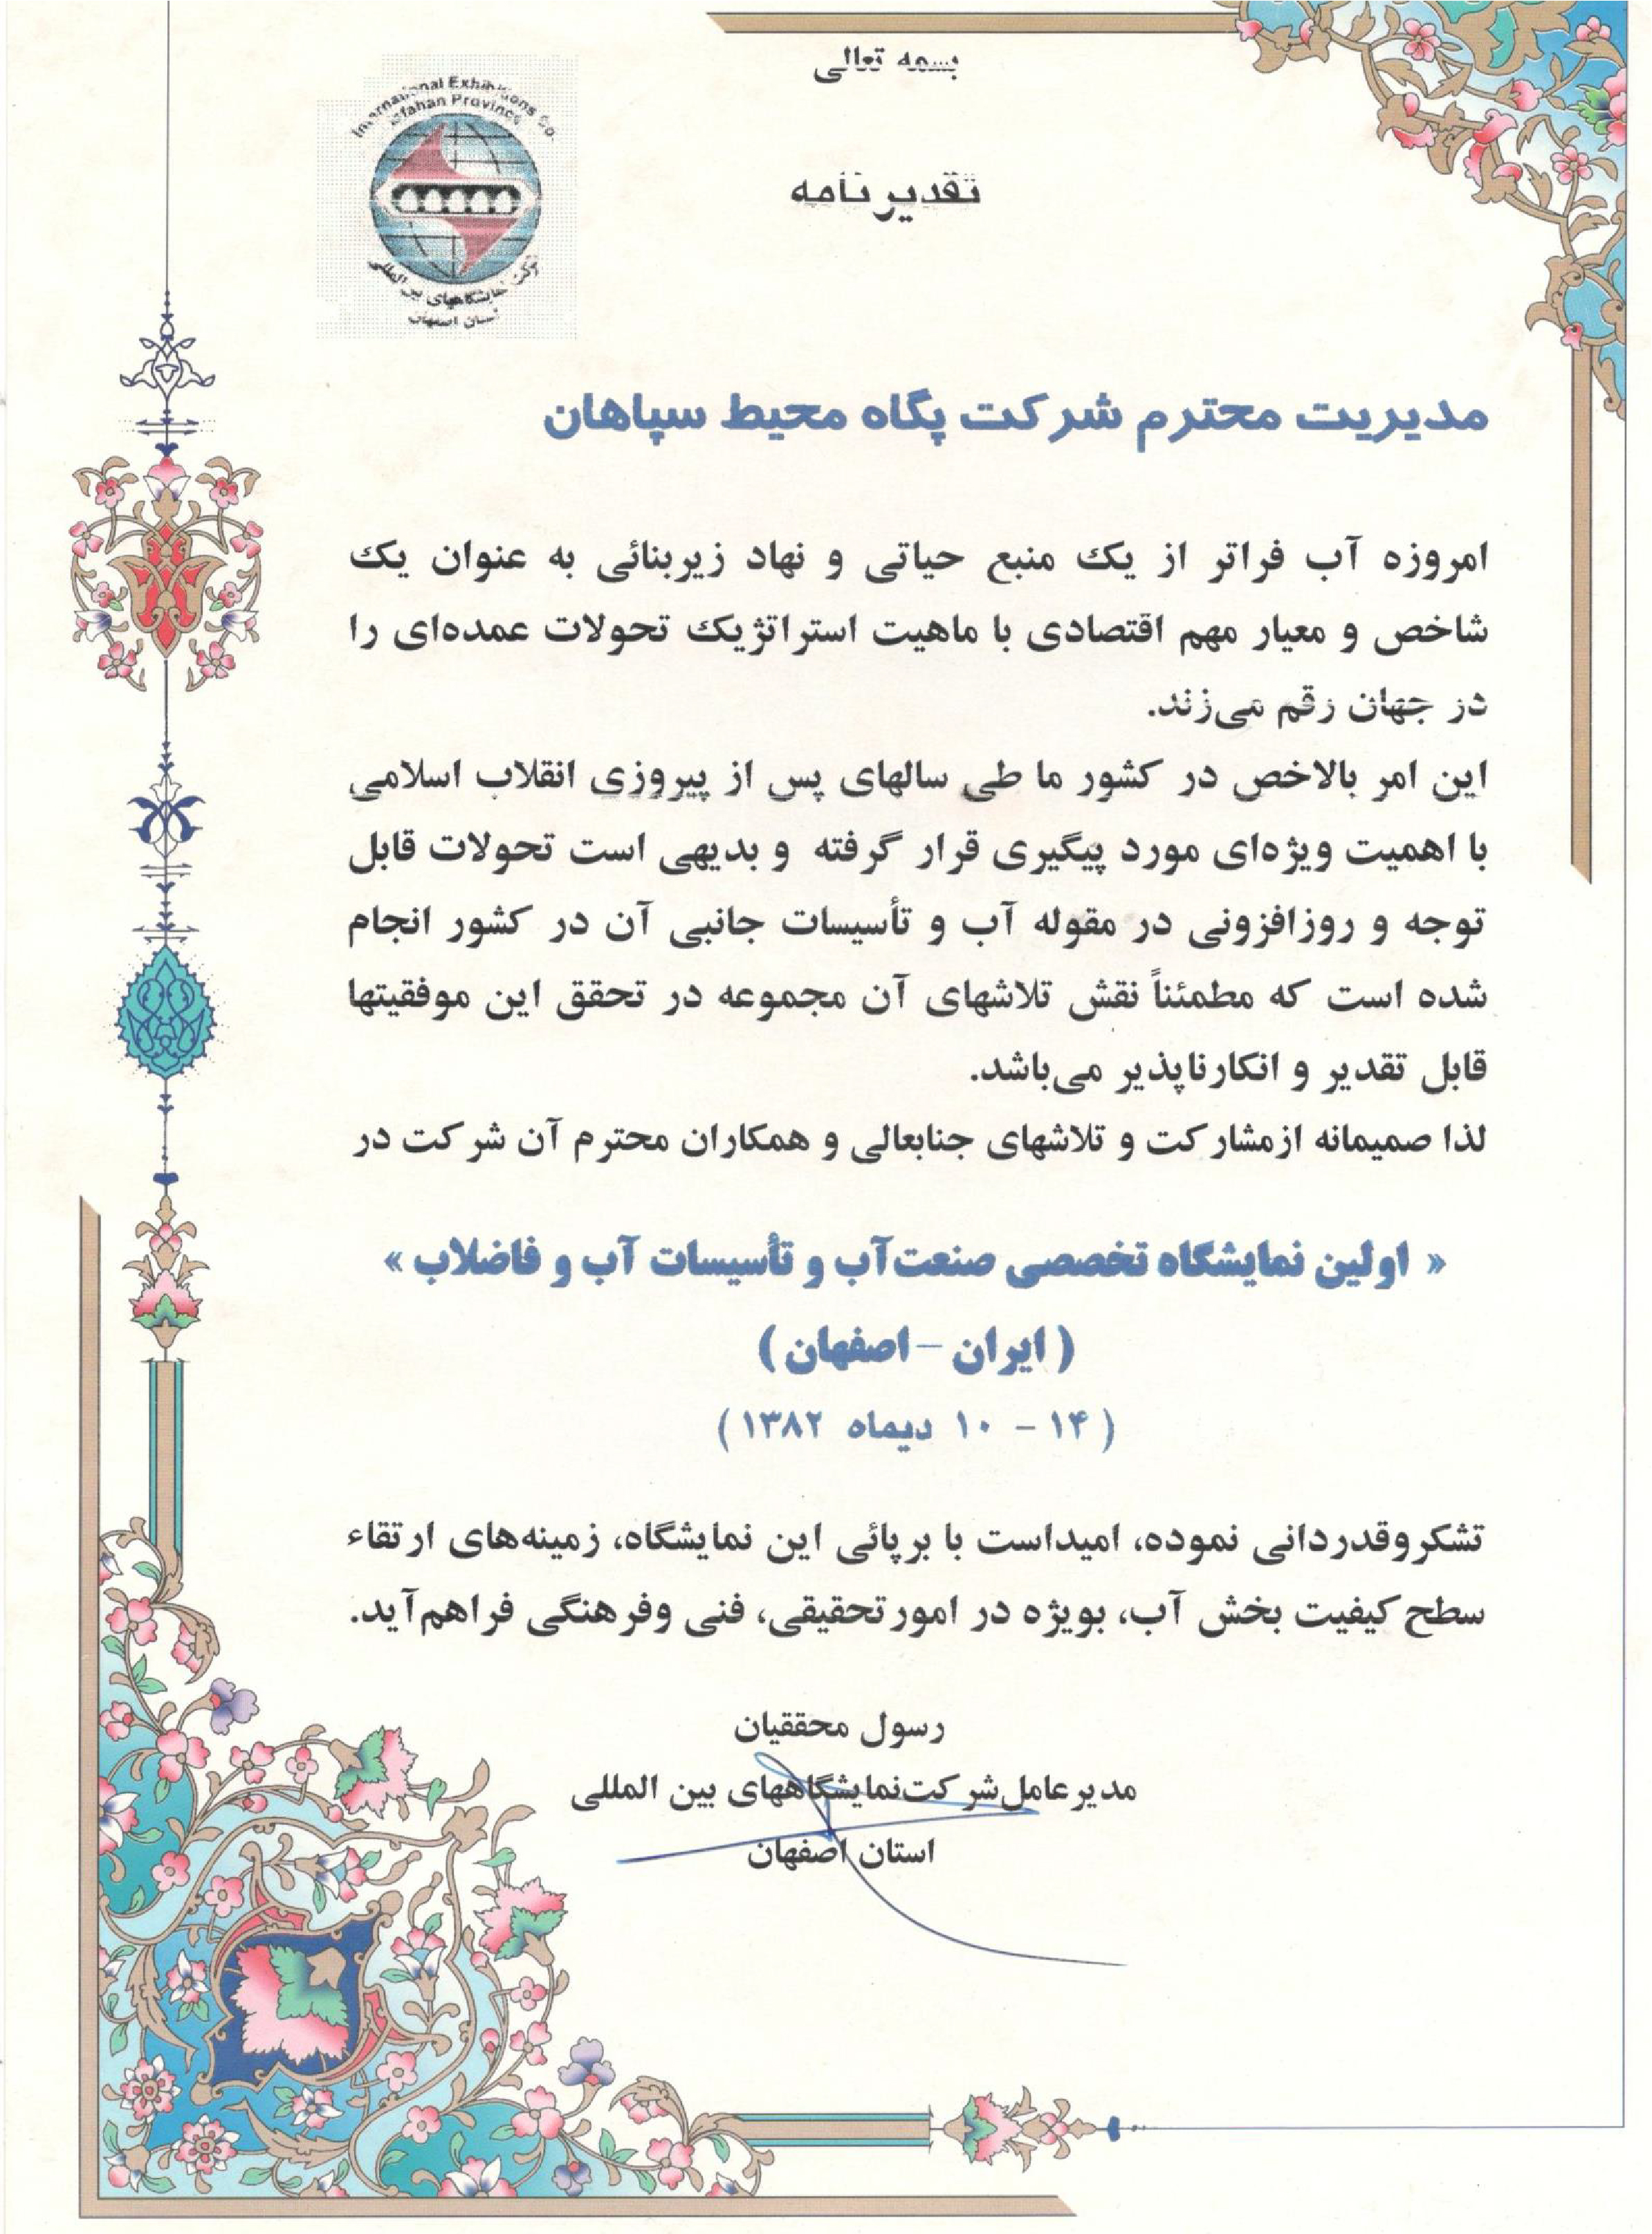 بسمه تعالی
International Exhibitions Co.
Isfahan Province
شرکت نمایشگاههای بین المللی
استان اصفهان
تقدیر نامه
مدیریت محترم شرکت پگاه محیط سپاهان
امروزه آب فراتر از یک منبع حیاتی و نهاد زیربنائی به عنوان یک
شاخص و معیار مهم اقتصادی با ماهیت استراتژیک تحولات عمده‌ای را
در جهان رقم می‌زند.
این امر بالاخص در کشور ما طی سالهای پس از پیروزی انقلاب اسلامی
با اهمیت ویژه‌ای مورد پیگیری قرار گرفته و بدیهی است تحولات قابل
توجه و روزافزونی در مقوله آب و تأسیسات جانبی آن در کشور انجام
شده است که مطمئناً نقش تلاشهای آن مجموعه در تحقق این موفقیتها
قابل تقدیر و انکارناپذیر می‌باشد.
لذا صمیمانه ازمشارکت و تلاشهای جنابعالی و همکاران محترم آن شرکت در
« اولین نمایشگاه تخصصی صنعت‌آب و تأسیسات آب و فاضلاب »
( ایران – اصفهان )
( ۱۴ – ۱۰ دیماه ۱۳۸۲ )
تشکروقدردانی نموده، امیداست با برپائی این نمایشگاه، زمینه‌های ارتقاء
سطح کیفیت بخش آب، بویژه در امورتحقیقی، فنی وفرهنگی فراهم‌آید.
رسول محققیان
مدیرعامل‌شرکت‌نمایشگاههای بین المللی
استان اصفهان